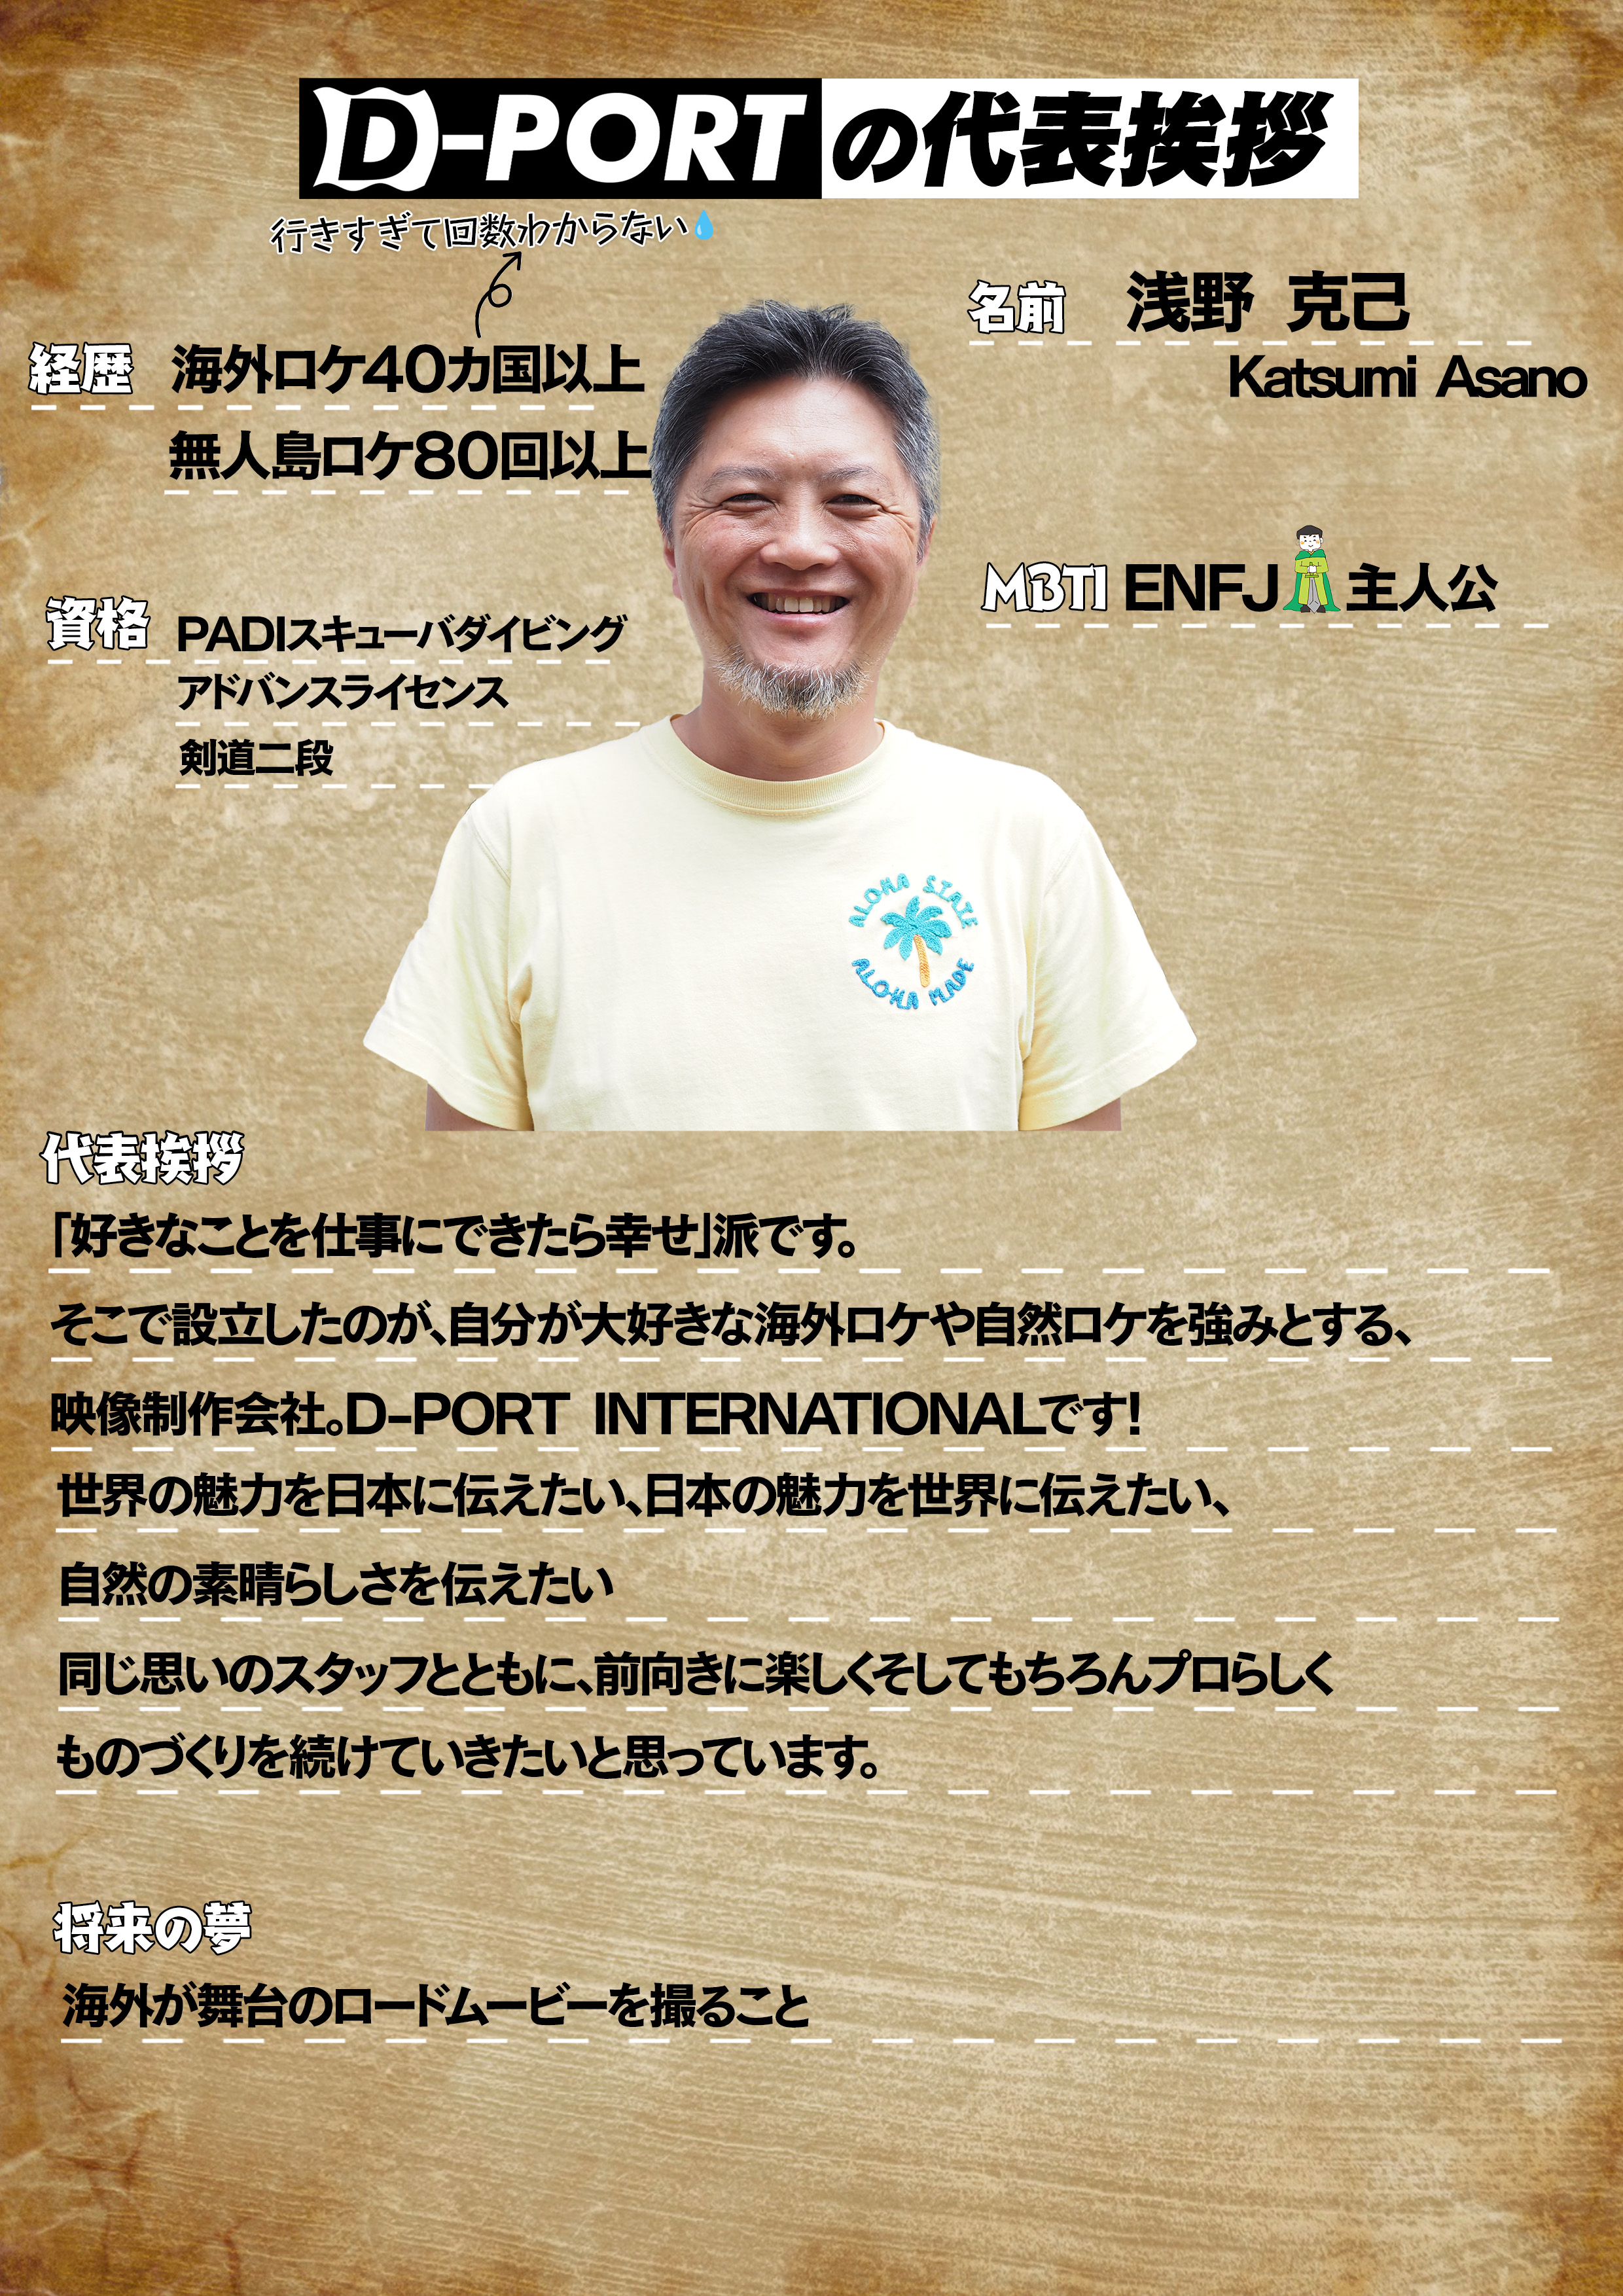 D-PORTの代表挨拶
行きすぎて回数わからない
経歴 海外ロケ40カ国以上
無人島ロケ80回以上
名前 浅野 克己
Katsumi Asano
MBTI ENFJ 主人公
資格 PADIスキューバダイビング
アドバンスライセンス
剣道二段
ALOHA STATE
ALOHA MADE
代表挨拶
「好きなことを仕事にできたら幸せ」派です。
そこで設立したのが、自分が大好きな海外ロケや自然ロケを強みとする、
映像制作会社。D-PORT INTERNATIONALです！
世界の魅力を日本に伝えたい、日本の魅力を世界に伝えたい、
自然の素晴らしさを伝えたい
同じ思いのスタッフとともに、前向きに楽しくそしてもちろんプロらしく
ものづくりを続けていきたいと思っています。
将来の夢
海外が舞台のロードムービーを撮ること